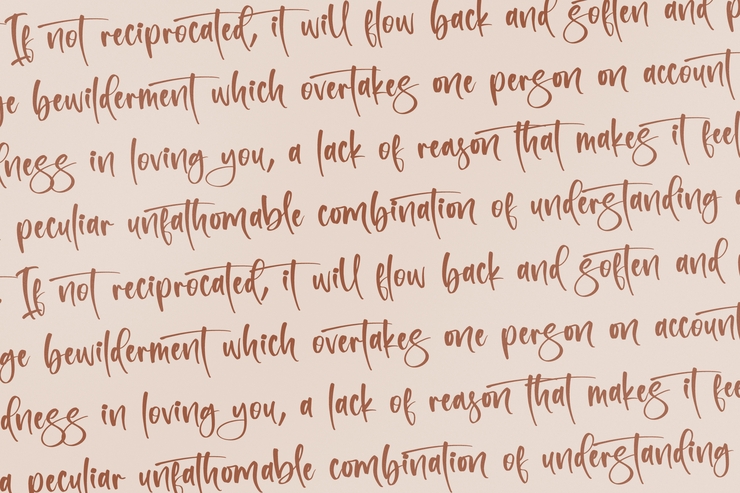 If not reciprocated, it will flow back and soften and p
ge bewilderment which overtakes one person on account
dness in loving you, a lack of reason that makes it feel
peculiar unfathomable combination of understanding
If not reciprocated, it will flow back and soften and
ge bewilderment which overtakes one person on account
dness in loving you, a lack of reason that makes it fee
a peculiar unfathomable combination of understanding